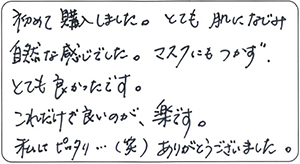 初めて購入しました。とても 肌になじみ
自然な感じでした。マスクにもつかず、
とても良かったです。
これだけで良いのが、楽です。
私にピッタリ…(笑) ありがとうございました。